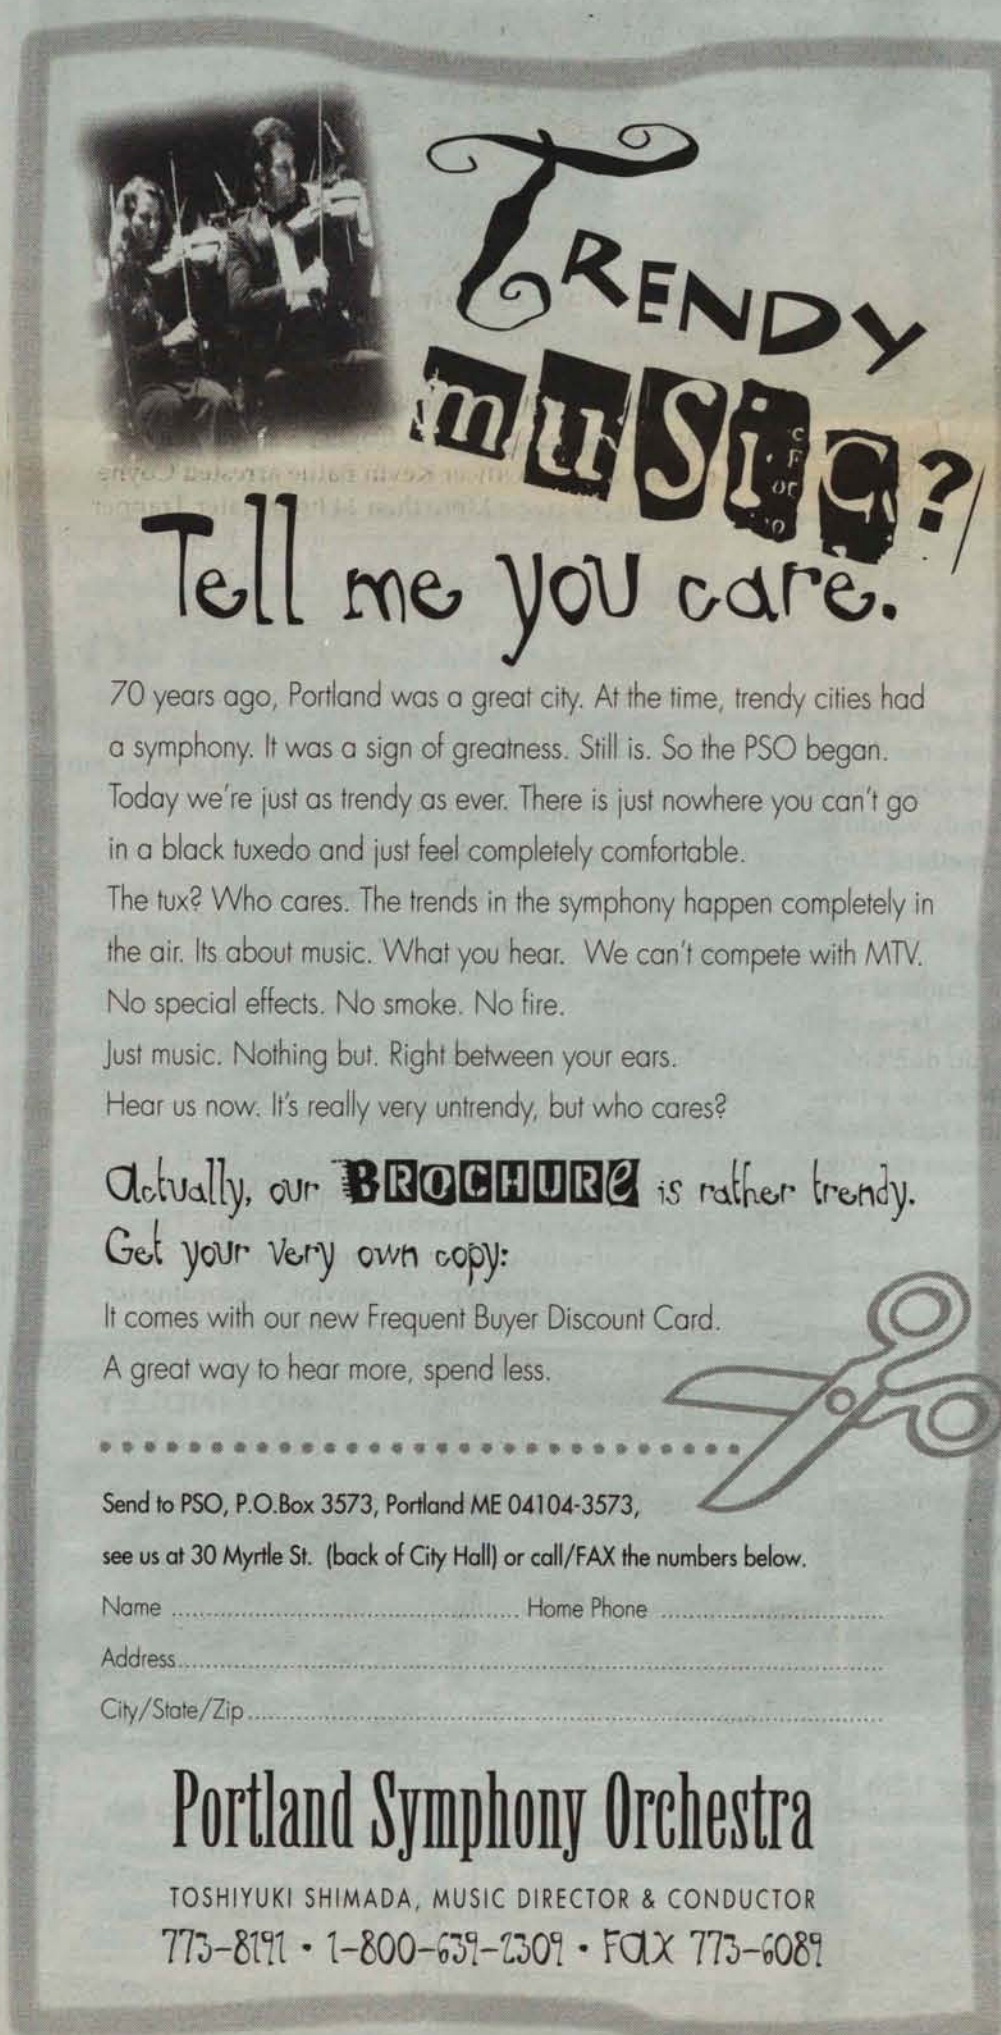 TRENDY
music?
Tell me you care.
70 years ago, Portland was a great city. At the time, trendy cities had
a symphony. It was a sign of greatness. Still is. So the PSO began.
Today we're just as trendy as ever. There is just nowhere you can't go
in a black tuxedo and just feel completely comfortable.
The tux? Who cares. The trends in the symphony happen completely in
the air. Its about music. What you hear. We can't compete with MTV.
No special effects. No smoke. No fire.
Just music. Nothing but. Right between your ears.
Hear us now. It's really very untrendy, but who cares?
Actually, our BROCHURe is rather trendy.
Get your very own copy:
It comes with our new Frequent Buyer Discount Card.
A great way to hear more, spend less.
Send to PSO, P.O.Box 3573, Portland ME 04104-3573,
see us at 30 Myrtle St. (back of City Hall) or call/FAX the numbers below.
Name ................ Home Phone ................
Address................
City/State/Zip................
Portland Symphony Orchestra
TOSHIYUKI SHIMADA, MUSIC DIRECTOR & CONDUCTOR
773-8191 • 1-800-639-2309 • FAX 773-6089